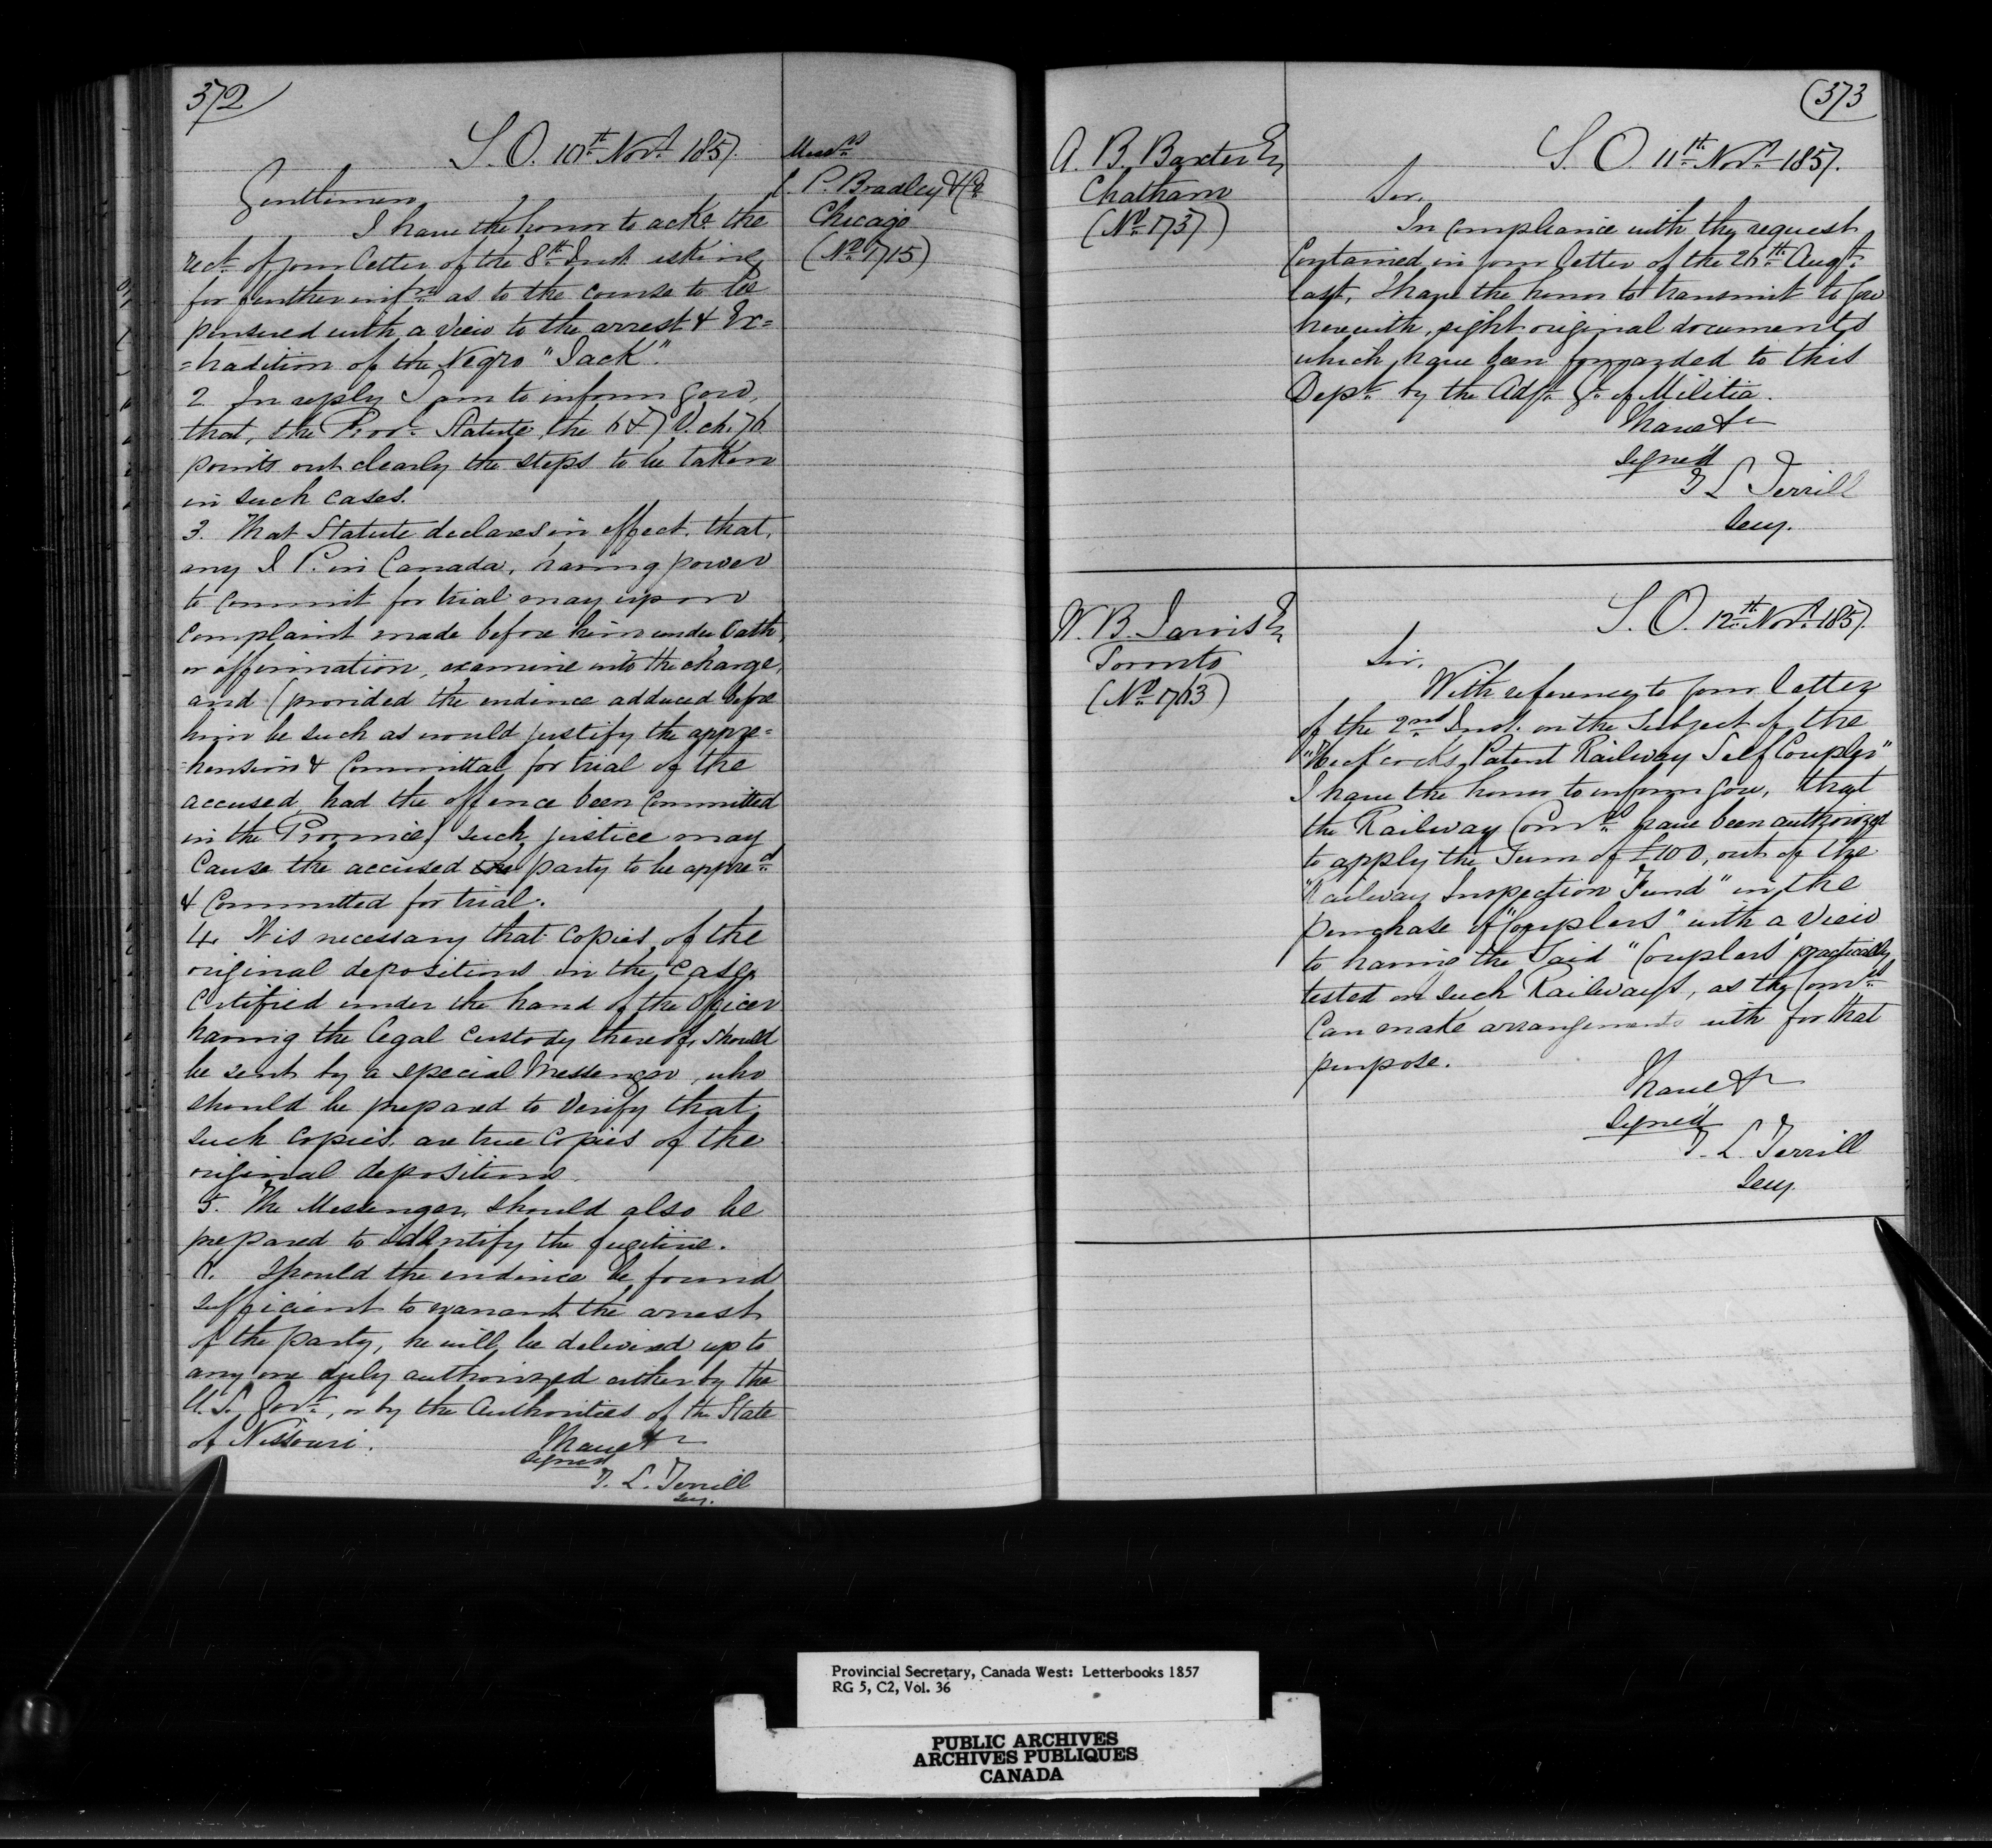 372
S. O. 10th Novr 1857.
Messrs
C. P. Bradley & Co
Chicago
(No 1715)
Gentlemen,
I have the honor to acke the
rect of your letter of the 8th Inst. asking
for further infn as to the course to be
pursued with a view to the arrest & Ex=
=tradition of the Negro "Jack".
2 In reply I am to inform you,
that, the Provl Statute, the 6 & 7 V. ch. 76
points out clearly the steps to be taken
in such cases.
3. That Statute declares in effect, that,
any J. P. in Canada, having power
to commit for trial may upon
complaint made before him under Oath,
or affirmation, examine into the charge,
and (provided the evidence adduced before
him be such as would justify the appre=
=hension & Committal for trial of the
accused, had the offence been Committed
in the Province) such justice may
Cause the accused the party to be appred
& Committed for trial.
4. It is necessary that copies of the
original depositions in the Case,
Certified under the hand of the Officer
having the legal custody thereof, should
be sent by a special Messenger, who
should be prepared to verify that
such copies are true Copies of the
original depositions.
5. The Messenger should also be
prepared to identify the fugitive.
6. Should the evidence be found
sufficient to warrant the arrest
of the party, he will be delivered up to
any one duly authorized either by the
U. S. Govt, or by the Authorities of the State
of Missouri.
I have &c
Signed
T. L. Terrill
Secy.
(373
A. B. Baxter Esq
Chatham
(No 1737)
S. O. 11th Novr 1857.
Sir,
In compliance with the request
Contained in your letter of the 26th Augt
last, I have the honor to transmit to you
herewith, eight original documents
which have been forwarded to this
Dept by the Adjt Gl of Militia.
I have &c
Signed
T L Terrill
Secy.
W. B. Jarvis Esq
Toronto
(No 1763)
S. O. 12th Novr 1857.
Sir,
With reference to your letter
of the 2nd Inst. on the Subject of the
Patent Railway Self Coupler"
I have the honor to inform you, that
the Railway Comrs have been authorized
to apply the Sum of £100, out of the
"Railway Inspection Fund" in the
purchase of "Couplers" with a view
to having the Said "Couplers" practically
tested on such Railways, as the Comrs
Can make arrangements with for that
purpose.
I have &c
Signed
T. L. Terrill
Secy.
Provincial Secretary, Canada West: Letterbooks 1857
RG 5, C2, Vol. 36
PUBLIC ARCHIVES
ARCHIVES PUBLIQUES
CANADA